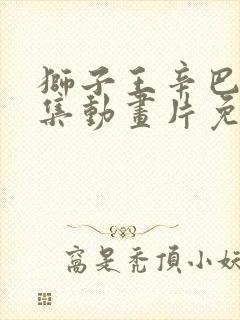 獅子王辛巴
集動畫片免
窩是禿頂小妖